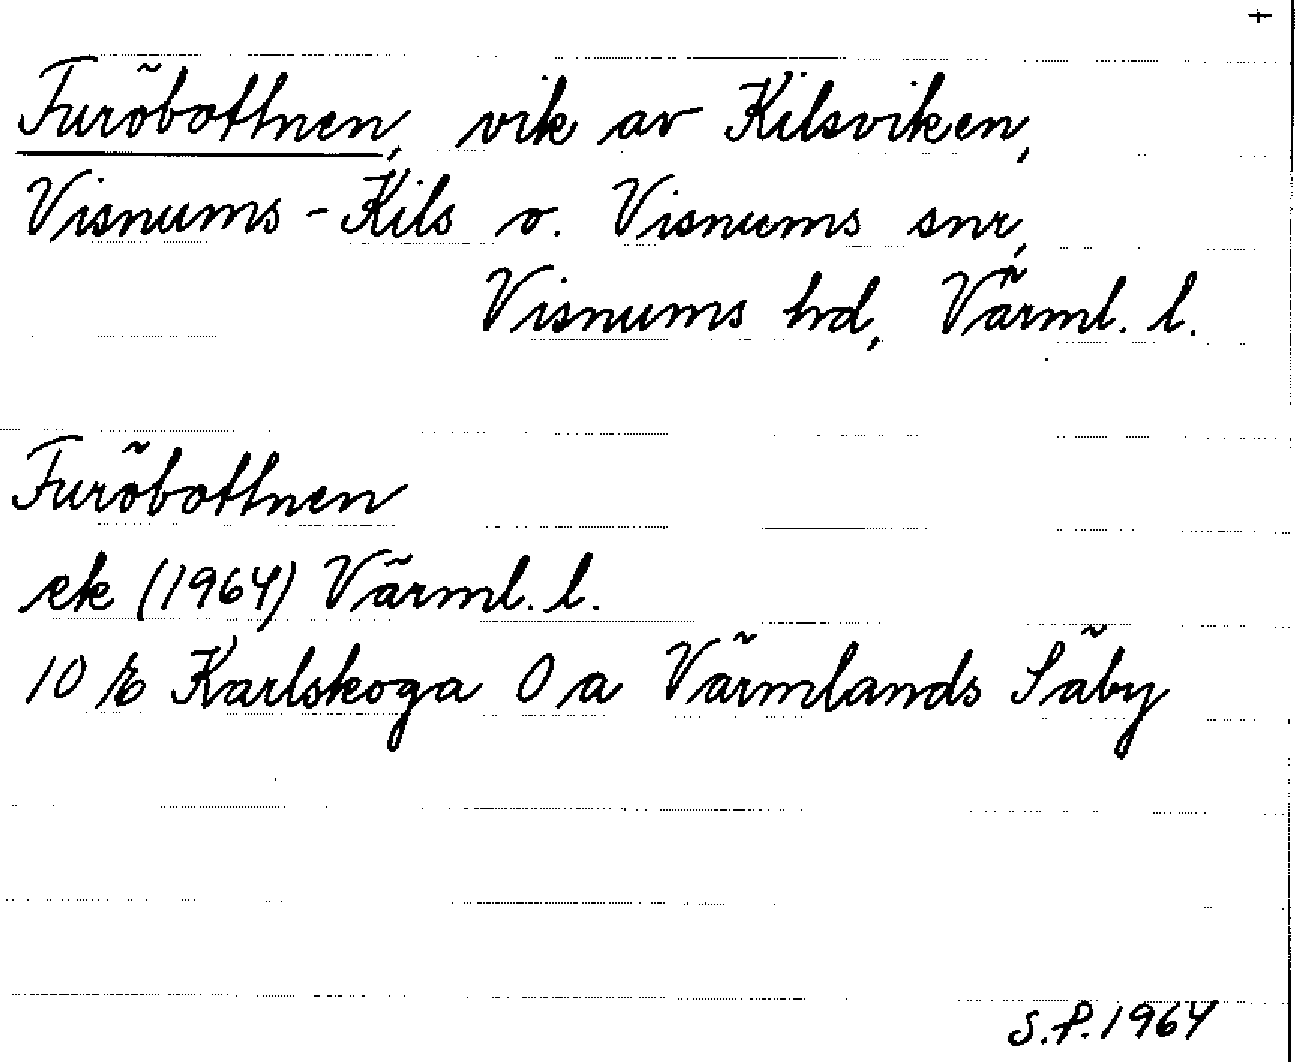 +
Furöbottnen, vik av Kilsviken,
Visnums-Kils o. Visnums snr,
Visnums hd, Värml. l.
Furöbottnen
ek (1964) Värml. l.
10 E Karlskoga 0 a Värmlands Säby
S.P. 1964